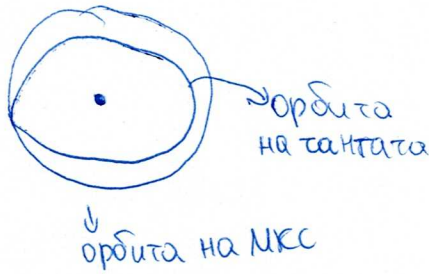 орбита
на чантата
орбита на МКС